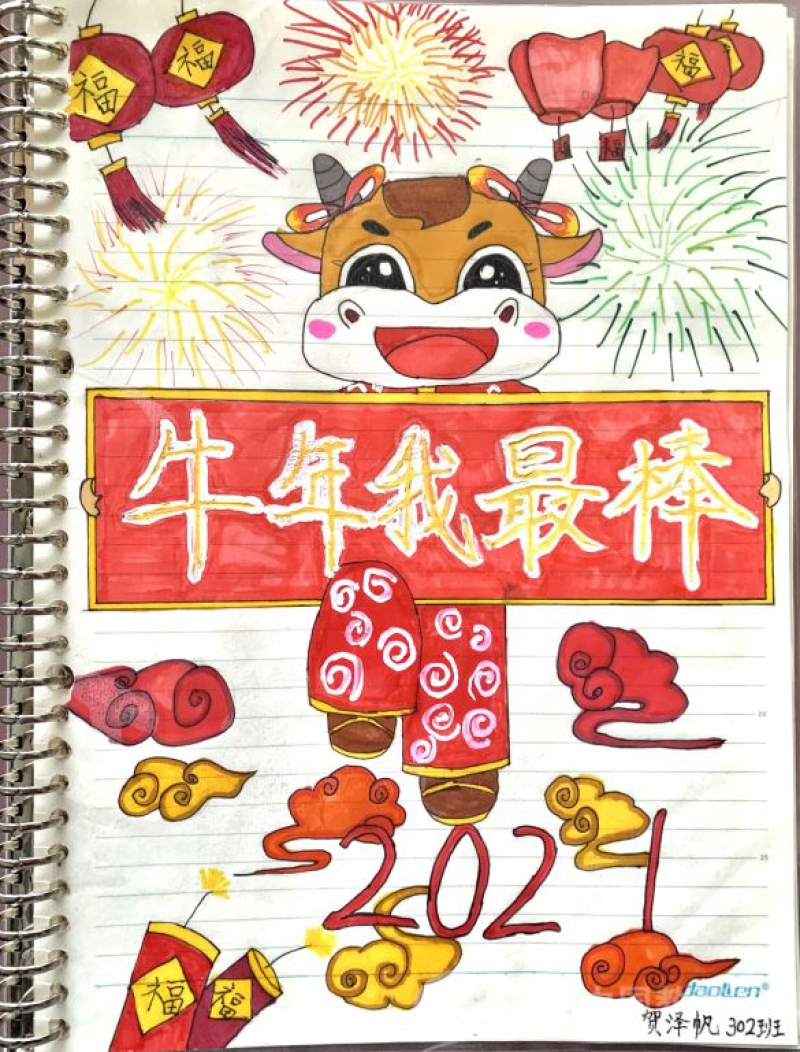 福
福
福
福
牛年我最棒
20
25
2021
福
福
daolen®
贺泽帆 302班